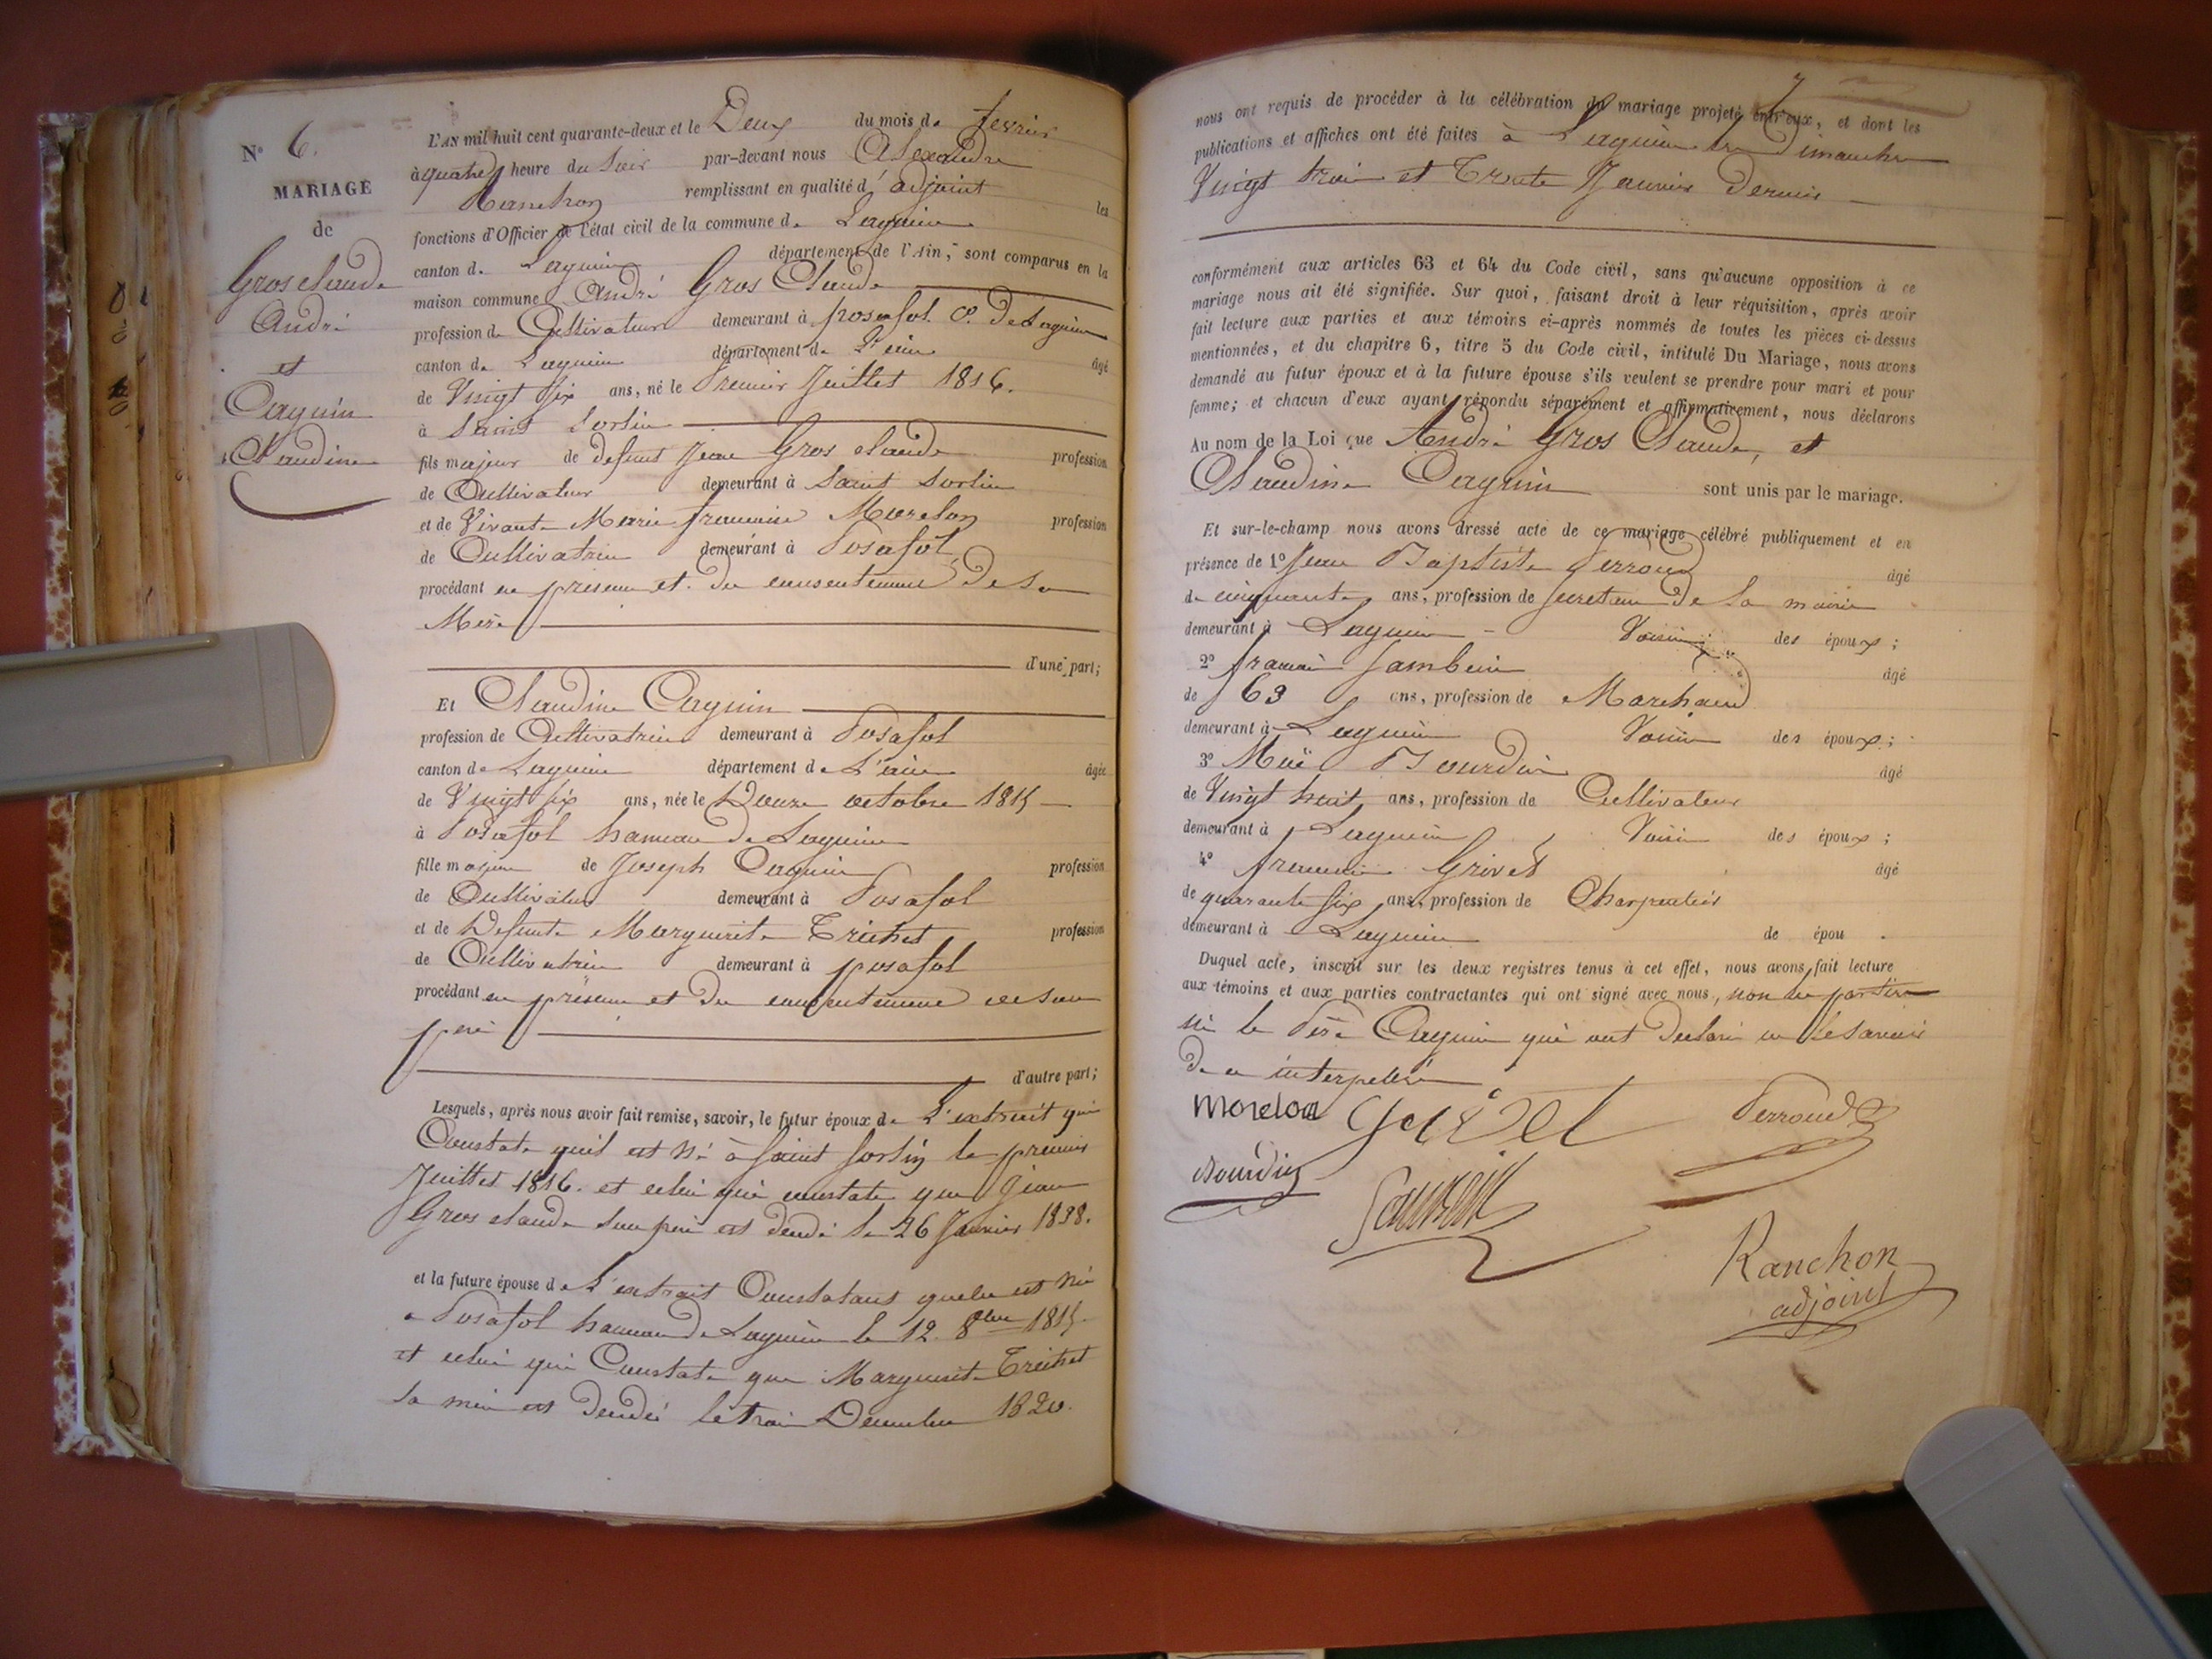 N° 6.
MARIAGE
de
Gros claude
André
et
Caguin
Claudine
L'AN mil huit cent quarante-deux et le Deux du mois de fevrier
à quatre heure du Soir par-devant nous Alexandre
Ranchon remplissant en qualité d'adjoint les
fonctions d'Officier de l'état civil de la commune de Lagnieu
canton de Lagnieu département de l'Ain, sont comparus en la
maison commune André Gros Claude
profession de Cultivateur demeurant à posafol C. de Lagnieu
canton de Lagnieu département de L'ain âgé
de Vingt Six ans, né le Premier Juillet 1816.
à Saint Sorlin
fils majeur de defunt Jean Gros claude profession
de Cultivateur demeurant à Saint Sorlin
et de Vivante Marie francoise Morelon profession
de Cultivatrice demeurant à Posafol
procédant en presence et du consentement De Sa
Mère
d'une part;
Et Claudine Caguin
profession de Cultivatrice demeurant à Posafol
canton de Lagnieu département de L'ain âgée
de Vingt six ans, née le Douze octobre 1815
à Posafol hameau de Lagnieu
fille majeure de Joseph Caguin profession
de Cultivateur demeurant à Posafol
et de Defunte Marguerite Trichet profession
de Cultivatrice demeurant à posafol
procédant en présence et du consentement de son
pere
d'autre part;
Lesquels, après nous avoir fait remise, savoir, le futur époux de L'extrait qui
Constate quil est Né à Saint Sorlin le premier
Juillet 1816. et celui qui constate que Jean
Gros claude Son pere est décédé le 26 Janvier 1838.
et la future épouse de L'extrait Constatant quelle est Née
a Posafol hameau de Lagnieu le 12 8bre 1815
et celui qui Constate que Marguerite Trichet
sa mère est décédée le trois Decembre 1820.
7
nous ont requis de procéder à la célébration du mariage projeté entr'eux, et dont les
publications et affiches ont été faites à Lagnieu les Dimanches
Vingt trois et Trente Janvier Dernier
conformément aux articles 63 et 64 du Code civil, sans qu'aucune opposition à ce
mariage nous ait été signifiée. Sur quoi, faisant droit à leur réquisition, après avoir
fait lecture aux parties et aux témoins ci-après nommés de toutes les pièces ci-dessus
mentionnées, et du chapitre 6, titre 5 du Code civil, intitulé Du Mariage, nous avons
demandé au futur époux et à la future épouse s'ils veulent se prendre pour mari et pour
femme; et chacun d'eux ayant répondu séparément et affirmativement, nous déclarons
Au nom de la Loi que André Gros Claude, et
Claudine Caguin sont unis par le mariage.
Et sur-le-champ nous avons dressé acte de ce mariage célébré publiquement et en
présence de 1° Jean Baptiste Perroud âgé
de cinquante ans, profession de secretaire De la mairie
demeurant à Lagnieu Voisin des époux;
2° francois Jambein âgé
de 63 ans, profession de Marchand
demeurant à Lagnieu Voisin des époux;
3° Bourdin âgé
de Vingt huit ans, profession de Cultivateur
demeurant à Lagnieu Voisin des époux;
4° francois Grivet âgé
de quarante six ans, profession de Charpentier
demeurant à Lagnieu de épou .
Duquel acte, inscrit sur les deux registres tenus à cet effet, nous avons fait lecture
aux témoins et aux parties contractantes qui ont signé avec nous, non les parties
ni le Père Caguin qui ont Declaré ne le savoir
De ce interpellés
Morelon Grivet Perroud
Bourdin
Ranchon
adjoint